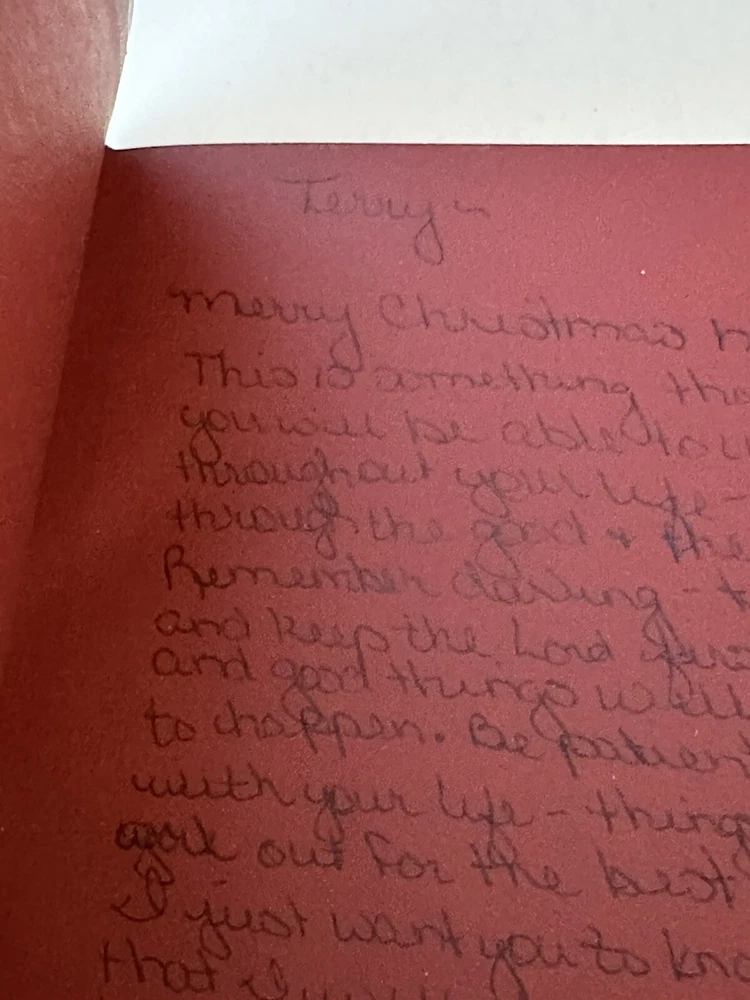 Terry ~
Merry Christmas
This is something
you will be able to
throughout your life -
through the good + the
Remember darling -
and keep the Lord
and good things will
to happen. Be patient
with your life - things
work out for the best
I just want you to
that I